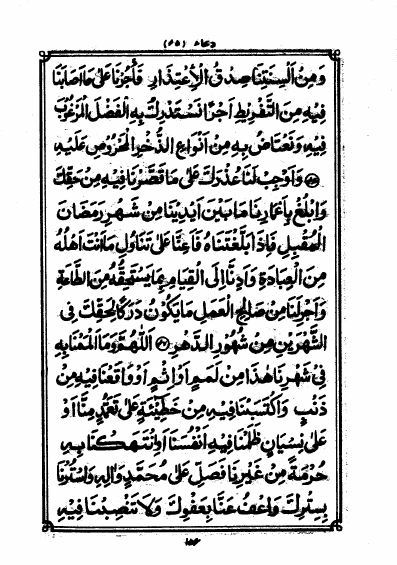 دعاء (٤٥)
وَمِنْ اَلْسِنَتِنَا صِدْقُ الْاِعْتِذَارِ فَأْجُرْنَا عَلٰى مَا اَصَابَنَا
فِيْهِ مِنَ التَّفْرِيْطِ اَجْرًا نَسْتَدْرِكُ بِهِ الْفَضْلَ الْمَرْغُوْبَ
فِيْهِ وَنَعْتَاضُ بِهٖ مِنْ اَنْوَاعِ الذُّخْرِ الْمَحْرُوْصِ عَلَيْهِ
وَاَوْجِبْ لَنَا عُذْرَكَ عَلٰى مَا قَصَّرْنَا فِيْهِ مِنْ حَقِّكَ
وَابْلُغْ بِاَعْمَارِنَا مَا بَيْنَ اَيْدِيْنَا مِنْ شَهْرِ رَمَضَانَ
الْمُقْبِلِ فَاِذَا بَلَّغْتَنَاهُ فَاَعِنَّا عَلٰى تَنَاوُلِ مَا اَنْتَ اَهْلُهُ
مِنَ الْعِبَادَةِ وَاَدِّنَا اِلَى الْقِيَامِ بِمَا يَسْتَحِقُّهُ مِنَ الطَّاعَةِ
وَاَجْرِ لَنَا مِنْ صَالِحِ الْعَمَلِ مَا يَكُوْنُ دَرَكًا لِحَقِّكَ فِى
الشَّهْرَيْنِ مِنْ شُهُوْرِ الدَّهْرِ اَللّٰهُمَّ وَمَا اَلْمَمْنَا بِهٖ
فِىْ شَهْرِنَا هٰذَا مِنْ لَمَمٍ اَوْ اِثْمٍ اَوْ وَاقَعْنَا فِيْهِ مِنْ
ذَنْبٍ وَاكْتَسَبْنَا فِيْهِ مِنْ خَطِيْئَةٍ عَلٰى تَعَمُّدٍ مِنَّا اَوْ
عَلٰى نِسْيَانٍ ظَلَمْنَا فِيْهِ اَنْفُسَنَا اَوِ انْتَهَكْنَا بِهٖ
حُرْمَةً مِنْ غَيْرِنَا فَصَلِّ عَلٰى مُحَمَّدٍ وَاٰلِهٖ وَاسْتُرْنَا
بِسِتْرِكَ وَاعْفُ عَنَّا بِعَفْوِكَ وَلَا تَنْصِبْنَا فِيْهِ